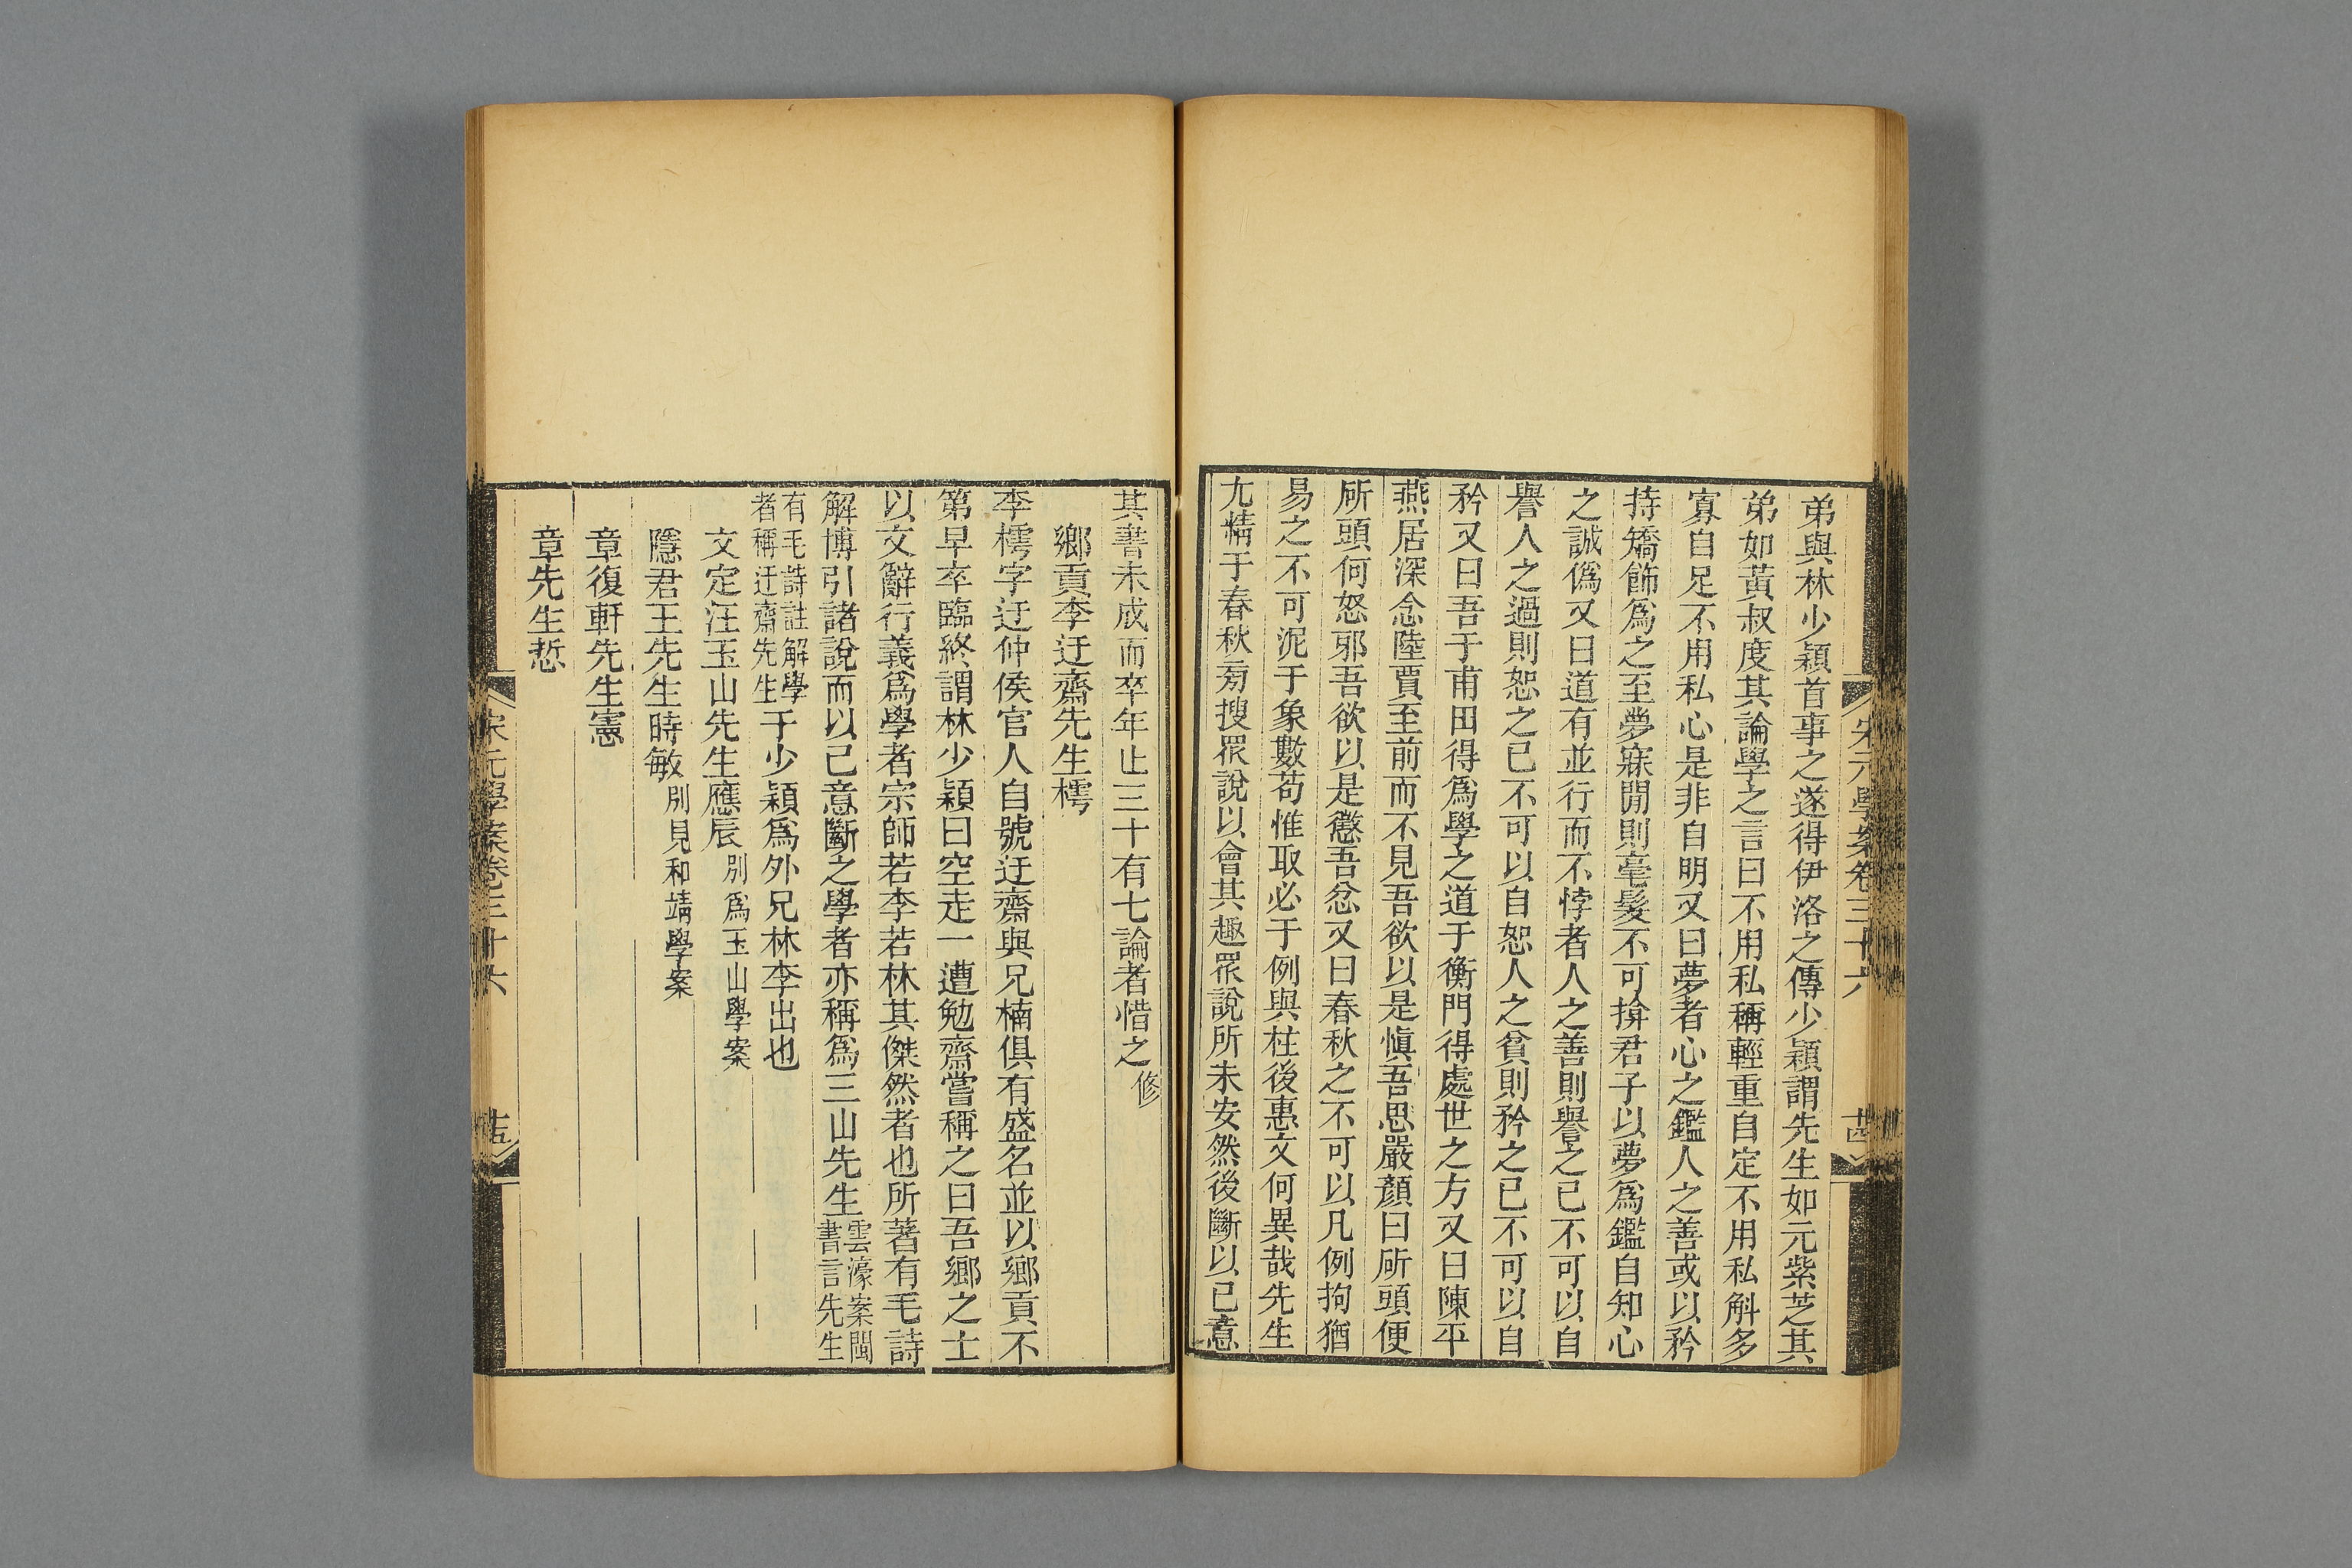 弟與林少穎首事之遂得伊洛之傳少穎謂先生如元紫芝其
弟如黃叔度其論學之言曰不用私稱輕重自定不用私斛多
寡自足不用私心是非自明又曰夢者心之鑑人之善或以矜
持矯飾爲之至夢寐閒則毫髮不可揜君子以夢爲鑑自知心
之誠僞又曰道有並行而不悖者人之善則譽之己不可以自
譽人之過則恕之己不可以自恕人之貧則矜之己不可以自
矜又曰吾于甫田得爲學之道于衡門得處世之方又曰陳平
燕居深念陸賈至前而不見吾欲以是愼吾思嚴顏曰斫頭便
斫頭何怒邪吾欲以是懲吾忿又曰春秋之不可以凡例拘猶
易之不可泥于象數苟惟取必于例與柱後惠文何異哉先生
尤精于春秋旁搜眾說以會其趣眾說所未安然後斷以已意
宋元學案卷三十六
廿四
其書未成而卒年止三十有七論者惜之修
鄉貢李迂齋先生樗
李樗字迂仲侯官人自號迂齋與兄楠俱有盛名並以鄉貢不
第早卒臨終謂林少穎曰空走一遭勉齋嘗稱之曰吾鄉之士
以文辭行義爲學者宗師若李若林其傑然者也所著有毛詩
解博引諸說而以己意斷之學者亦稱爲三山先生雲濠案閩書言先生
有毛詩註解學者稱迂齋先生于少穎爲外兄林李出也
文定汪玉山先生應辰別爲玉山學案
隱君王先生時敏別見和靖學案
章復軒先生憲
章先生悊
宋元學案卷三十六